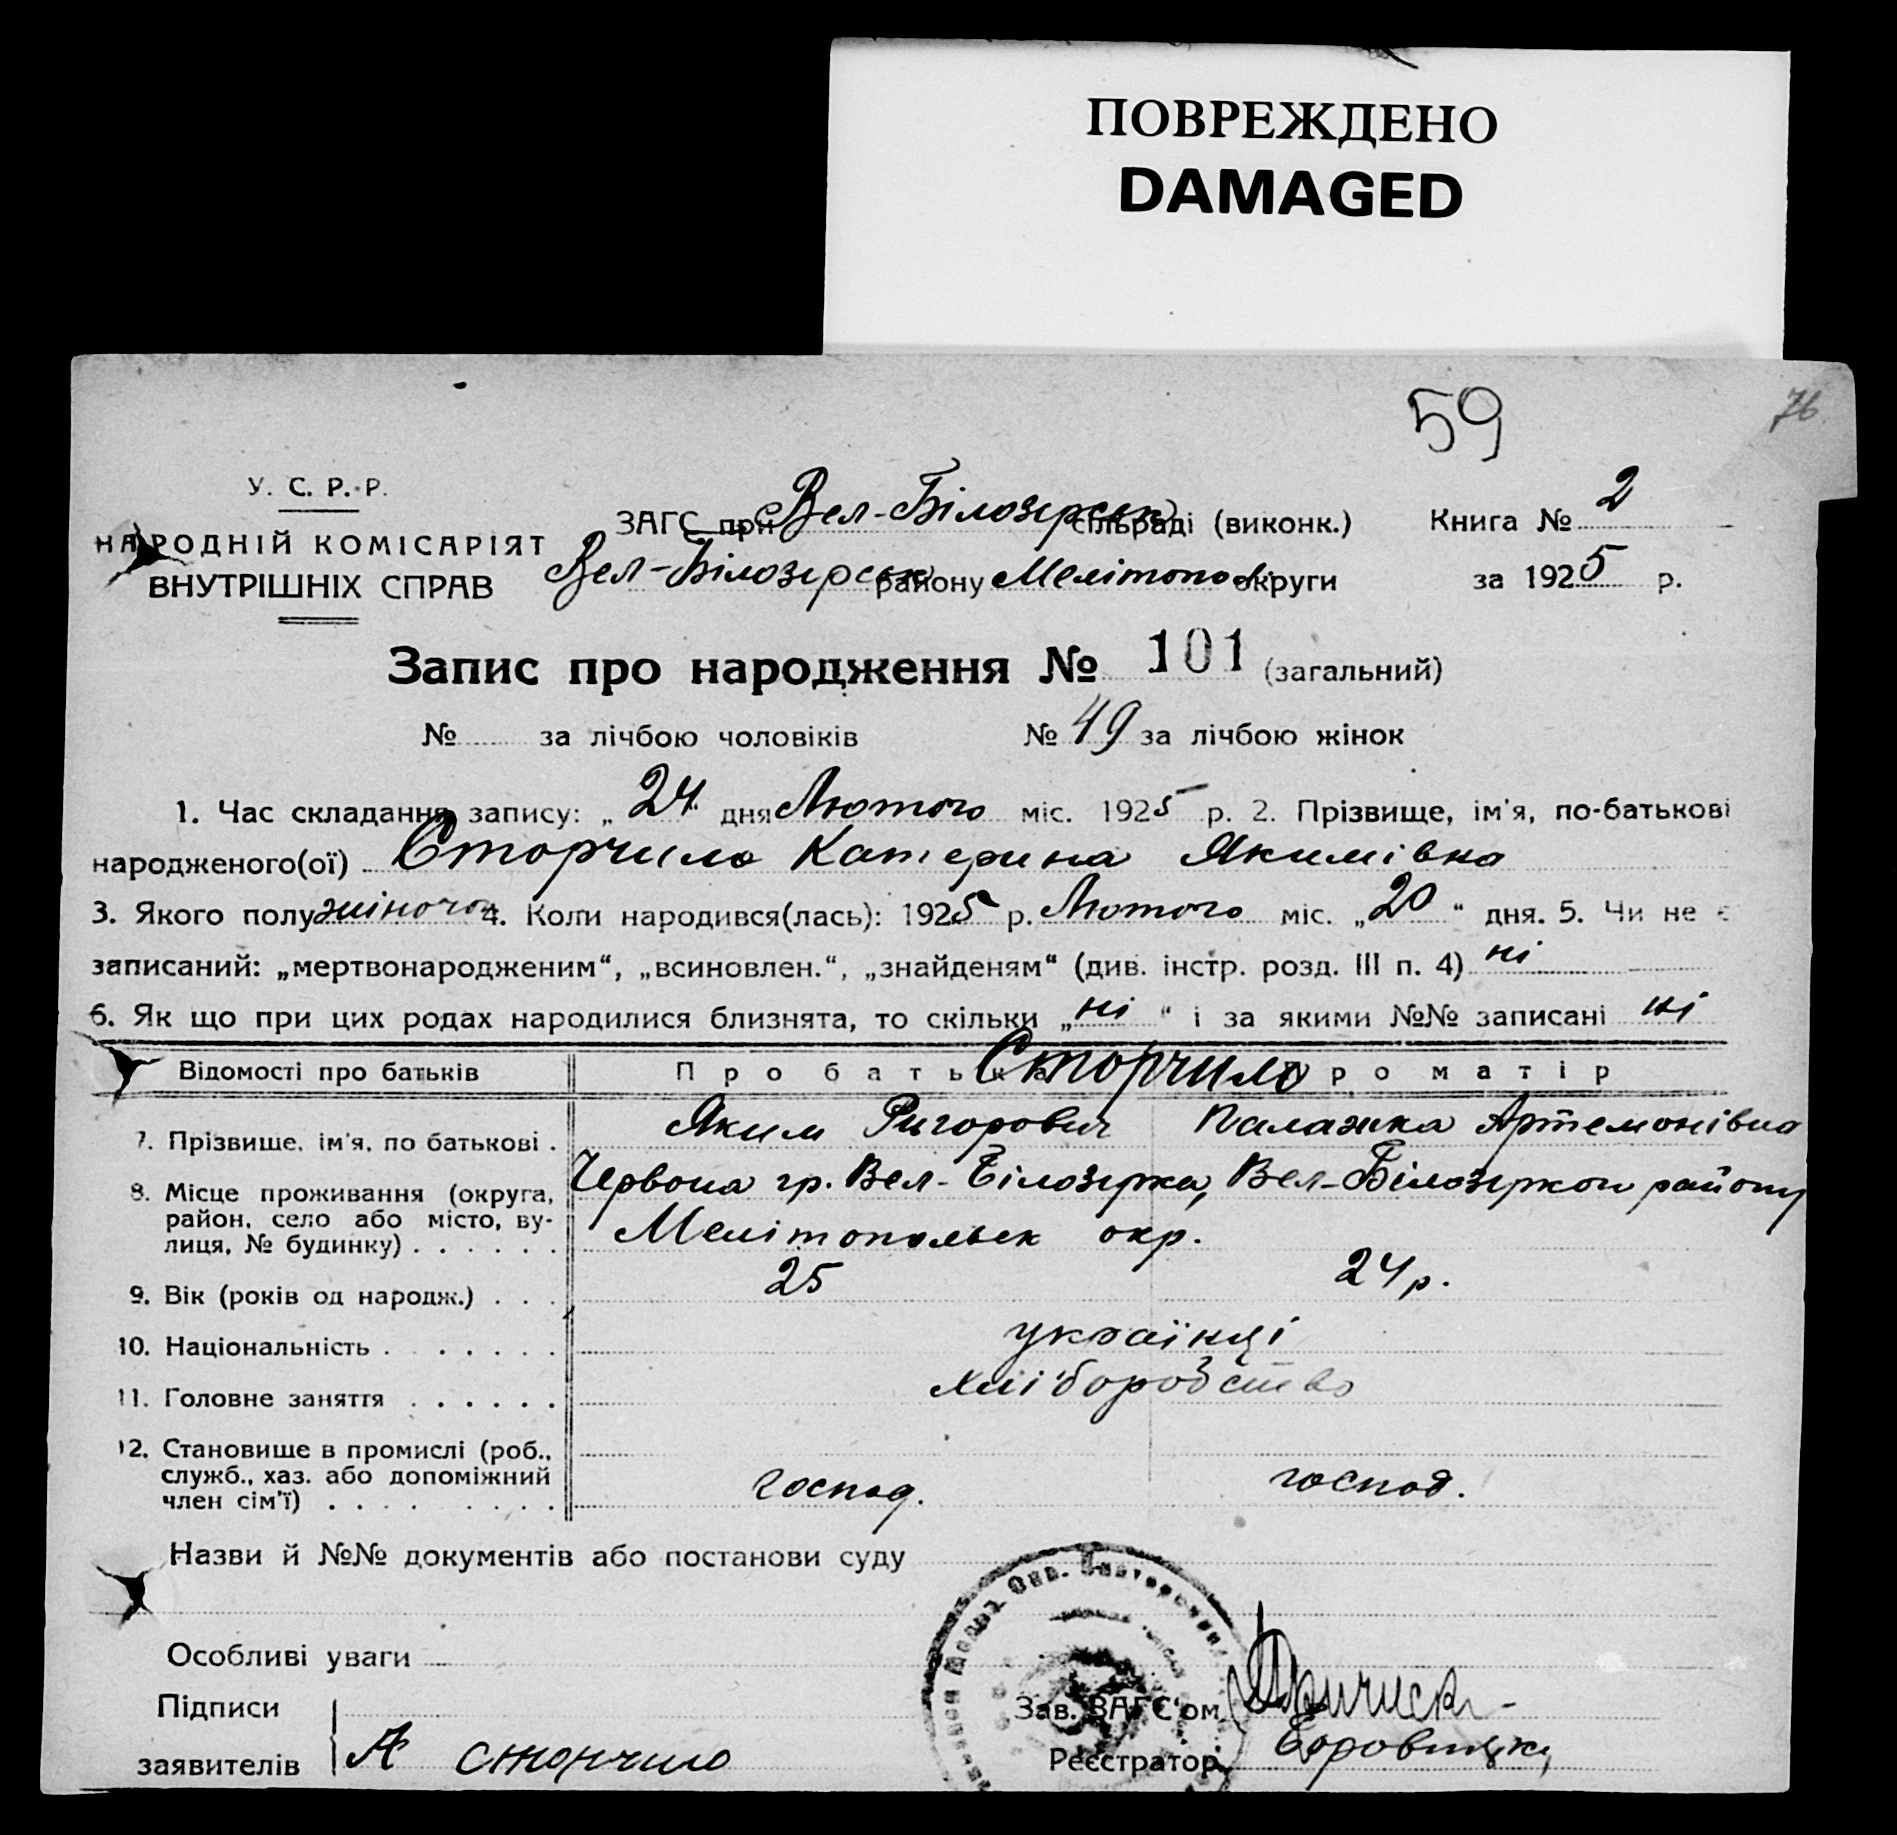 ПОВРЕЖДЕНО
DAMAGED
59
76
У. С. Р. Р.
НАРОДНІЙ КОМІСАРІЯТ
ВНУТРІШНІХ СПРАВ
ЗАГС при Вел-Білозерськ сільраді (виконк.) Книга № 2
Вел-Білозерськ району Мелітополь округи за 1925 р.
Запис про народження № 101 (загальний)
№ за лічбою чоловіків № 49 за лічбою жінок
1. Час складання запису: „24“ дня Лютого міс. 1925 р. 2. Прізвище, ім'я, по-батькові
народженого(ої) Сторчило Катерина Якимівна
3. Якого полу жіночої 4. Коли народився(лась): 1925 р. Лютого міс. „20“ дня. 5. Чи не є
записаний: „мертвонародженим“, „всиновлен.“, „знайденям“ (див. інстр. розд. III п. 4) ні
6. Як що при цих родах народилися близнята, то скільки „ні“ і за якими №№ записані ні
Відомості про батьків Про батька Сторчило Про матір
7. Прізвище, ім'я, по батькові . Яким Ригорович Палажка Артемонівна
8. Місце проживання (округа, район, село або місто, вулиця, № будинку) . . . . . . Червона гр. Вел-Білозерка, Вел-Білозеркої району
Мелітопольськ окр.
9. Вік (років од народж.) . . . 25 24 р.
10. Національність . . . . . . . українці
11. Головне заняття . . . . . . хліборобство
12. Становище в промислі (роб., служб., хаз. або допоміжний член сім'ї) . . . . . . . . . господ. господ.
Назви й №№ документів або постанови суду
Особливі уваги
Підписи
заявителів
А сторчило
Зав. ЗАГС'ом
Реєстратор